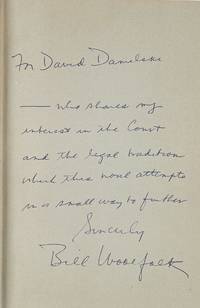 For David Danelski
— who shares my
interest in the Court
and the legal tradition
which this novel attempts
in a small way to further
Sincerely
Bill Woolfolk